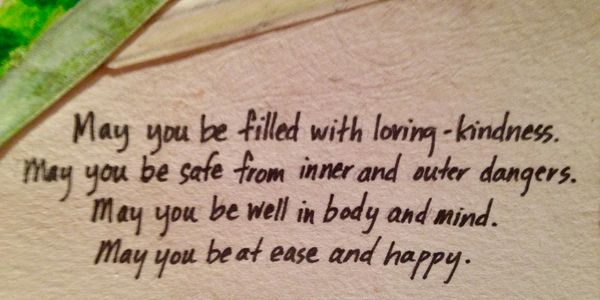 May you be filled with loving-kindness.
May you be safe from inner and outer dangers.
May you be well in body and mind.
May you be at ease and happy.